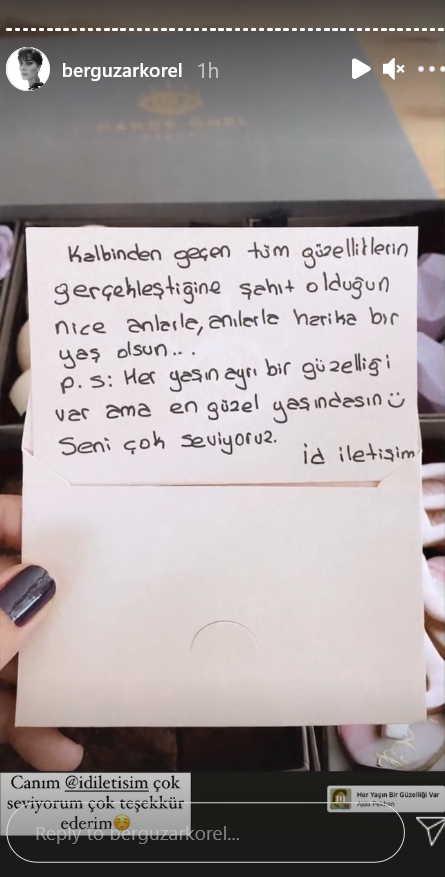 berguzarkorel 1h
Kalbinden geçen tüm güzelliklerin
gerçekleştiğine şahit olduğun
nice anlarla, anılarla harika bir
yaş olsun...
p.s: Her yaşın ayrı bir güzelliği
var ama en güzel yaşındasın
Seni çok seviyoruz.
id iletişim
Canım @idiletisim çok
seviyorum çok teşekkür
ederim☺️
Her Yaşın Bir Güzelliği Var
Ajda Pekkan
Reply to berguzarkorel...